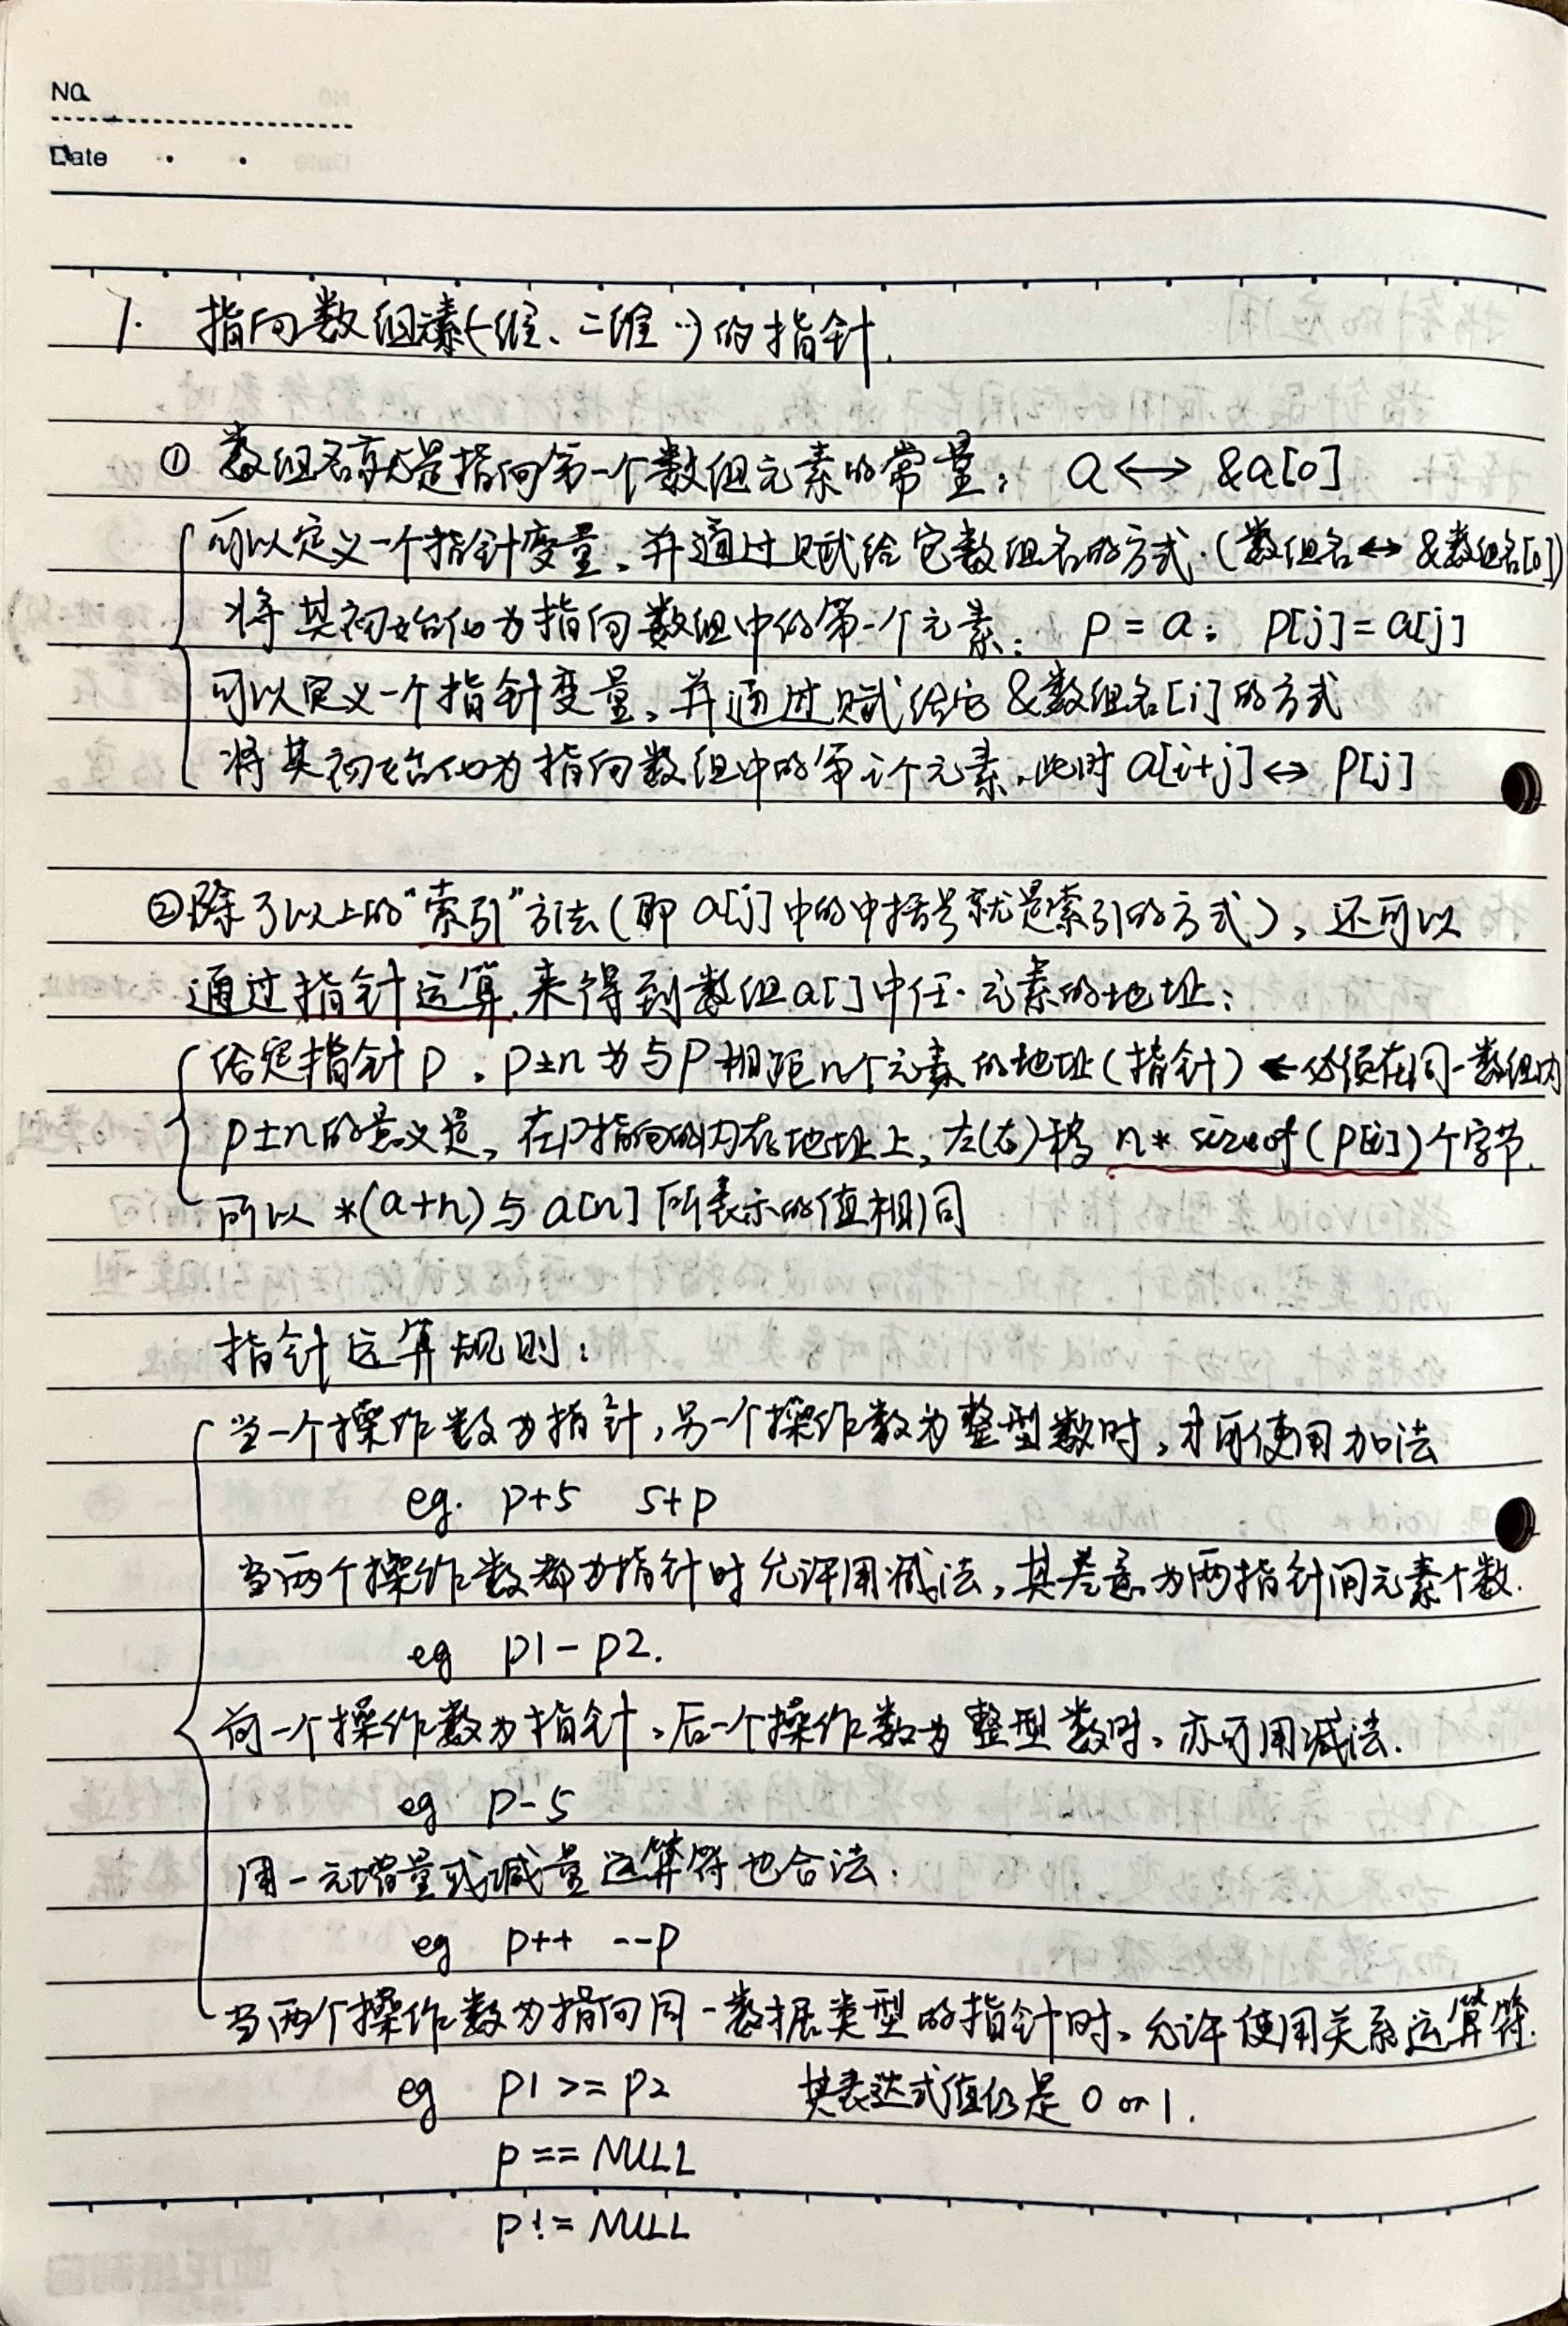 NO.
Date
1. 指向数组元素(一维、二维…)的指针.
① 数组名就是指向第一个数组元素的常量; a <-> &a[0]
可以定义一个指针变量,并通过赋给它数组名的方式.(数组名<->&数组名[0])
将其初始化为指向数组中的第一个元素; p = a; p[j] = a[j]
可以定义一个指针变量,并通过赋给它&数组名[i]的方式
将其初始化为指向数组中的第i个元素,此时 a[i+j] <-> p[j]
②除了以上的"索引"方法(即 a[j] 中的中括号就是索引的方式),还可以
通过指针运算.来得到数组a[]中任一元素的地址:
给定指针p,p±n为与p相距n个元素的地址(指针)←必须在同一数组内
p±n的意义是,在p指向的内存地址上,左(右)移 n* sizeof(p[i])个字节.
所以 *(a+n)与a[n]所表示的值相同
指针运算规则:
当一个操作数为指针,另一个操作数为整型数时,才可使用加法
eg. p+5 5+p
当两个操作数都为指针时允许用减法,其差意为两指针间元素个数.
eg p1-p2.
前一个操作数为指针,后一个操作数为整型数时,亦可用减法.
eg p-5
用一元增量或减量运算符也合法:
eg p++ --p
当两个操作数为指向同一数据类型的指针时,允许使用关系运算符.
eg p1 >= p2 其表达式值仍是 0 or 1.
p == NULL
p != NULL